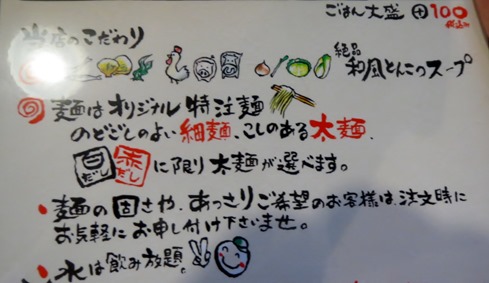 ごはん大盛 ⊕100
税込
当店のこだわり
絶品
和風とんこつスープ
麺はオリジナル特注麺
のどごしのよい細麺、こしのある太麺、
白だし 赤だし に限り太麺が選べます。
麺の固さや、あっさりご希望のお客様は、注文時に
お気軽にお申し付け下さいませ。
水は飲み放題。